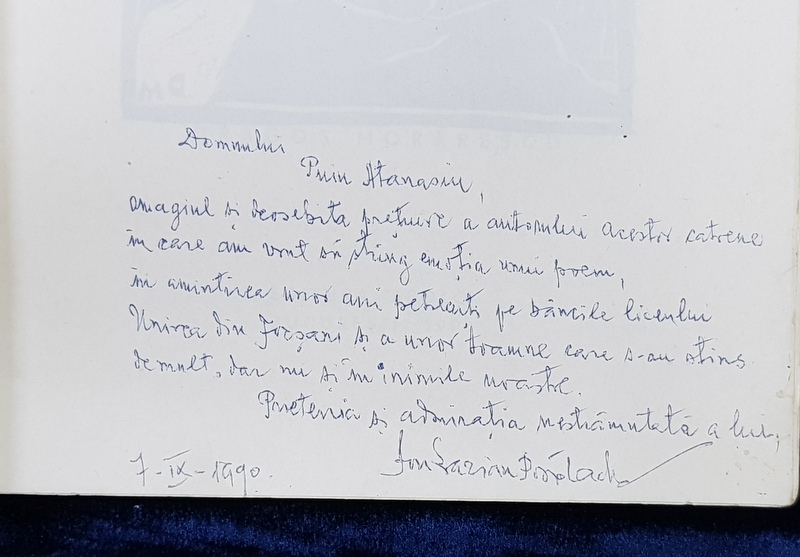 Domnului
Puiu Atanasiu,
omagiul si deosebita prețuire a autorului acestor catrene
în care am vrut să string emoția unui poem,
în amintirea unor ani petrecuti pe băncile liceului
Unirea din Focșani și a unor toamne care s-au stins
demult, dar nu și în inimile noastre.
Prietenia și admirația nestrămutată a lui,
Ion Larian Postolache
7-IX-1990.